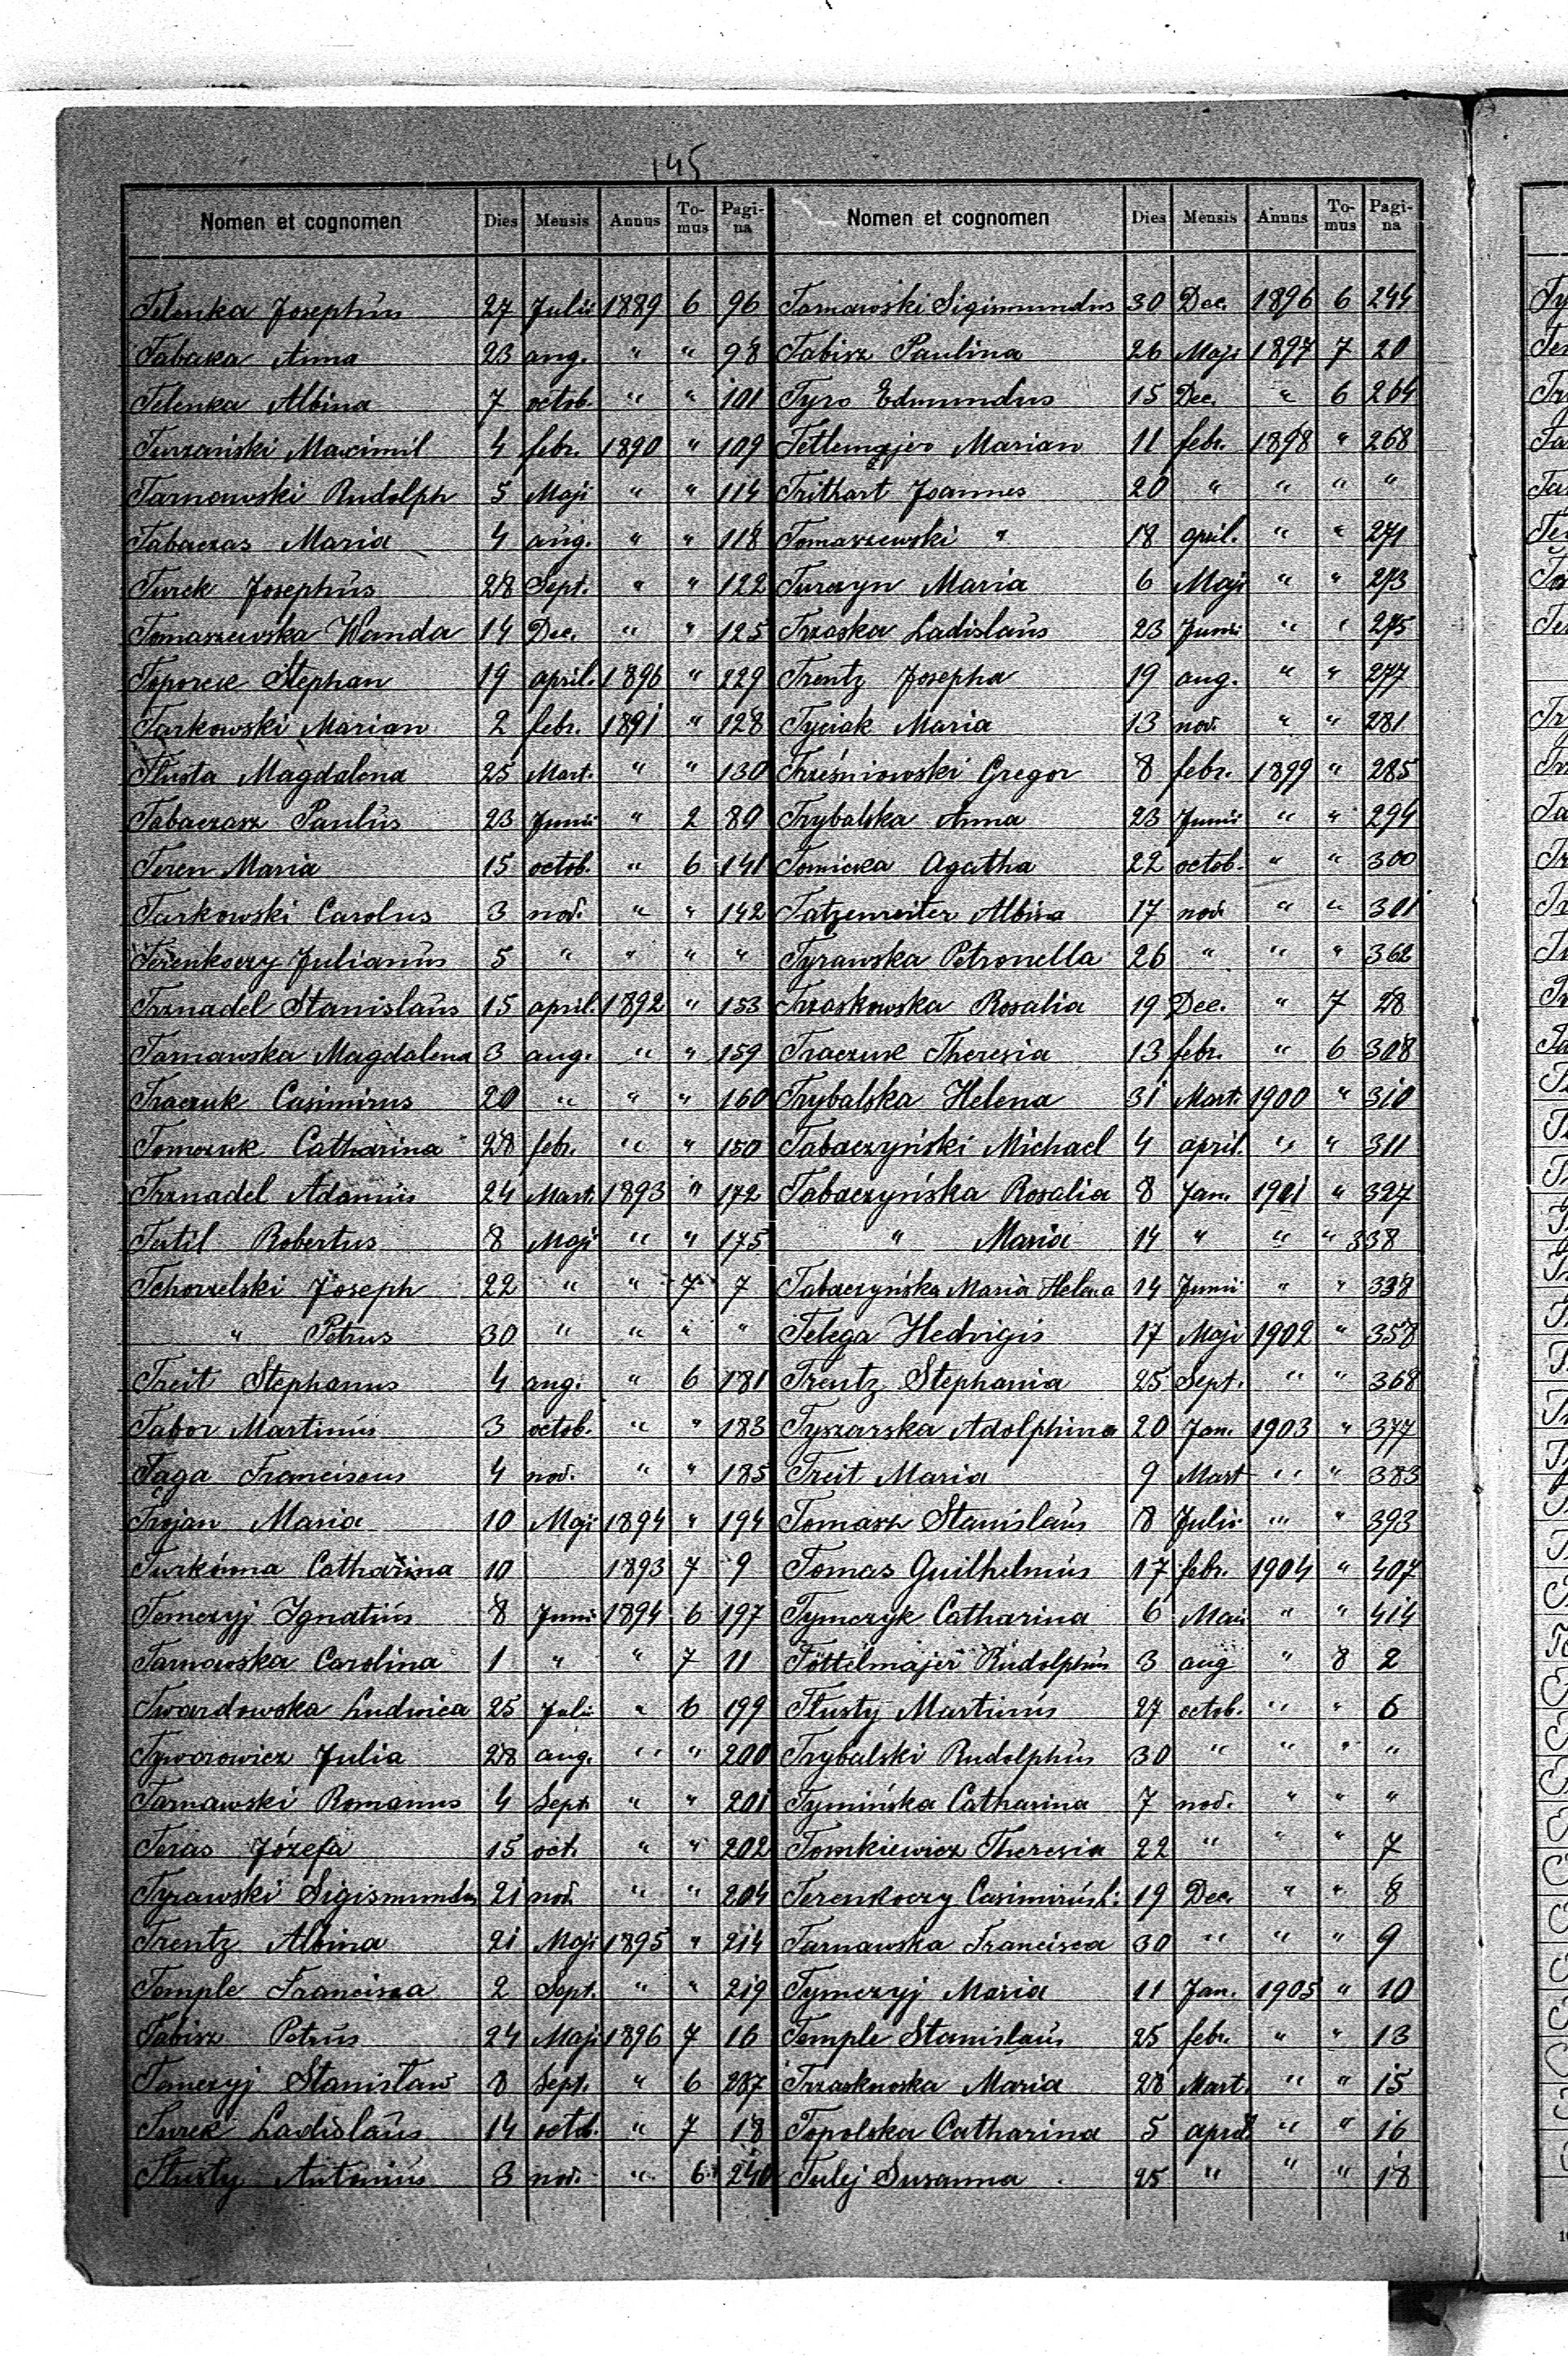 145
Nomen et cognomen Dies Mensis Annus To-mus Pagi-na Nomen et cognomen Dies Mensis Annus To-mus Pagi-na
Telenka Josephus 27 Julii 1889 6 96
Tabaka Anna 23 aug. " " 98
Telenka Albina 7 octob. " " 101
Turzański Maximil 4 febr. 1890 " 109
Tarnawski Rudolph 5 Maji " " 114
Tabaczas Maria 4 aug. " " 118
Turek Josephus 28 Sept. " " 122
Tomaszewska Wanda 14 Dec. " " 125
Toporek Stephan 19 april. 1896 " 229
Turkowski Marian 2 febr. 1891 " 128
Tłusta Magdalena 25 Mart. " " 130
Tabaczasz Paulus 23 Junii " 2 80
Teren Maria 15 octob. " 6 141
Turkowski Carolus 3 nov. " " 142
Terenkoczy Julianus 5 " " " "
Trznadel Stanislaus 15 april. 1892 " 153
Tarnawska Magdalena 3 aug. " " 159
Traczuk Casimirus 20 " " " 160
Tomczuk Catharina 28 febr. " " 150
Trznadel Adamus 24 Mart. 1893 " 172
Tertil Robertus 8 Maji " " 175
Tchorzelski Joseph 22 " " 7 7
" Petrus 30 " " " "
Treit Stephanus 4 aug. " 6 181
Tabor Martinus 3 octob. " " 183
Taga Franciscus 4 nov. " " 185
Trojan Maria 10 Maji 1894 " 194
Catharina 10 1893 7 9
Tomczyj Ignatius 8 Junii 1894 6 197
Tarnawska Carolina 1 " " 7 11
Twardowska Ludwica 25 Julii " 6 199
Tyworowicz Julia 28 aug. " " 200
Tarnawski Romanus 4 Sept. " " 201
Teras Józefa 15 oct. " " 202
Tyrawski Sigismundus 21 nov. " " 204
Trentz Albina 21 Maji 1895 " 214
Temple Francisca 2 Sept. " " 219
Tabisz Petrus 24 Maji 1896 7 16
Tomczyj Stanisław 8 Sept. " 6 287
Turek Ladislaus 14 octob. " 7 18
Tłusty Antonius 3 nov. " 6 240
Tarnawski Sigismundus 30 Dec. 1896 6 244
Tabisz Paulina 26 Maji 1897 7 20
Tyro Edmundus 15 Dec. " 6 264
Marian 11 febr. 1898 " 268
Trithart Joannes 20 " " " "
Tomaszewski " 18 april. " " 271
Turczyn Maria 6 Maji " " 273
Trzaska Ladislaus 23 Junii " " 275
Trentz Josepha 19 aug. " " 277
Tyciak Maria 13 nov. " " 281
Trześniowski Gregor 8 febr. 1899 " 285
Trybalska Anna 23 Junii " " 294
Tomicka Agatha 22 octob. " " 300
Tatzenreiter Albina 17 nov. " " 301
Tyrawska Petronella 26 " " " 362
Trzaskowska Rosalia 19 Dec. " 7 28
Traczuk Theresia 13 febr. " 6 308
Trybalska Helena 31 Mart. 1900 " 310
Tabaczyński Michael 4 april. " " 311
Tabaczyńska Rosalia 8 Jan. 1901 " 327
" Maria 14 " " " 338
Tabaczyńska Maria Helena 14 Junii " " 338
Telega Hedvigis 17 Maji 1902 " 358
Trentz Stephania 25 Sept. " " 368
Tyszarska Adolphina 20 Jan. 1903 " 377
Treit Maria 9 Mart " " 383
Tomasz Stanislaus 8 Julii " " 393
Tomas Guilhelmus 17 febr. 1904 " 407
Tymczyk Catharina 6 Maii " " 414
Töttelmajer Rudolphus 3 aug " 8 2
Tłusty Martinus 27 octob. " " 6
Trybalski Rudolphus 30 " " " "
Tymińska Catharina 7 nov. " " "
Tomkiewicz Theresia 22 " " " 7
Terenkoczy Casimirus 19 Dec. " " 8
Tarnawska Francisca 30 " " " 9
Tymczyj Maria 11 Jan. 1905 " 10
Temple Stanislaus 25 febr. " " 13
Trzaskowska Maria 28 Mart. " " 15
Topolska Catharina 5 april " " 16
Tulej Susanna 25 " " " 18